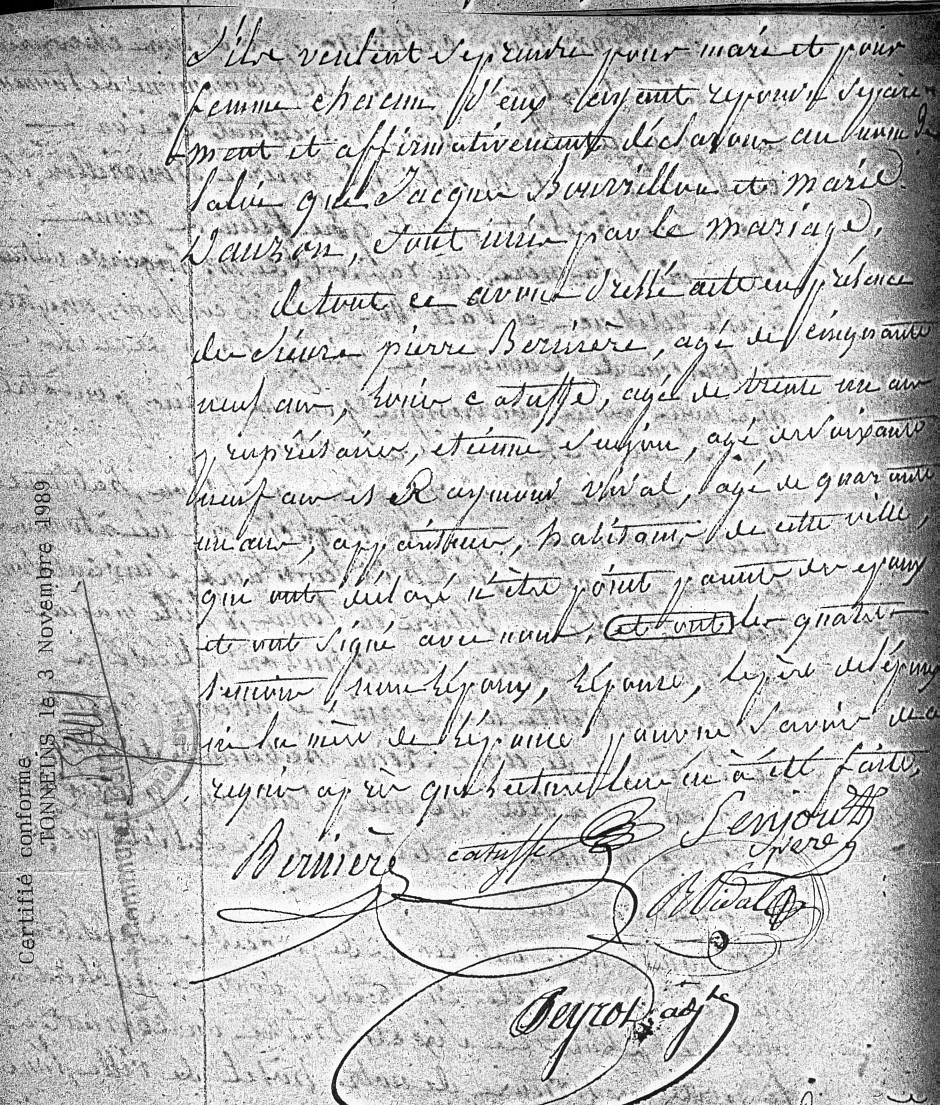 s'ils veulent se prendre pour mari et pour
femme chacun d'eux ayant repondu séparé-
ment et affirmativement déclarons au nom de
la loi que Jacques Bouvillon et marie
Dauzon, sont unis par le mariage,
de tout ce avons dressé acte en présence
des sieurs pierre Bernière, agé de cinquante
neuf ans, catuffe, agé de trente un ans
propriétaires, etienne senjou, agé de soixante
neuf ans et Raymond vidal, agé de quarante
un ans, appariteur, habitans de cette ville,
qui ont declaré n'être point parents des epoux
et ont signé avec nous, et ont les quatre
temoins, non l'époux, l'épouse, le père de l'époux
ni la mère de l'épouse pour ne savoir de ce
requis après que lecture leur en a été faite,
Bernière catuffe Senjou
père
R Vidal
Peyrot adjt
Certifié conforme
TONNEINS le 3 Novembre 1989